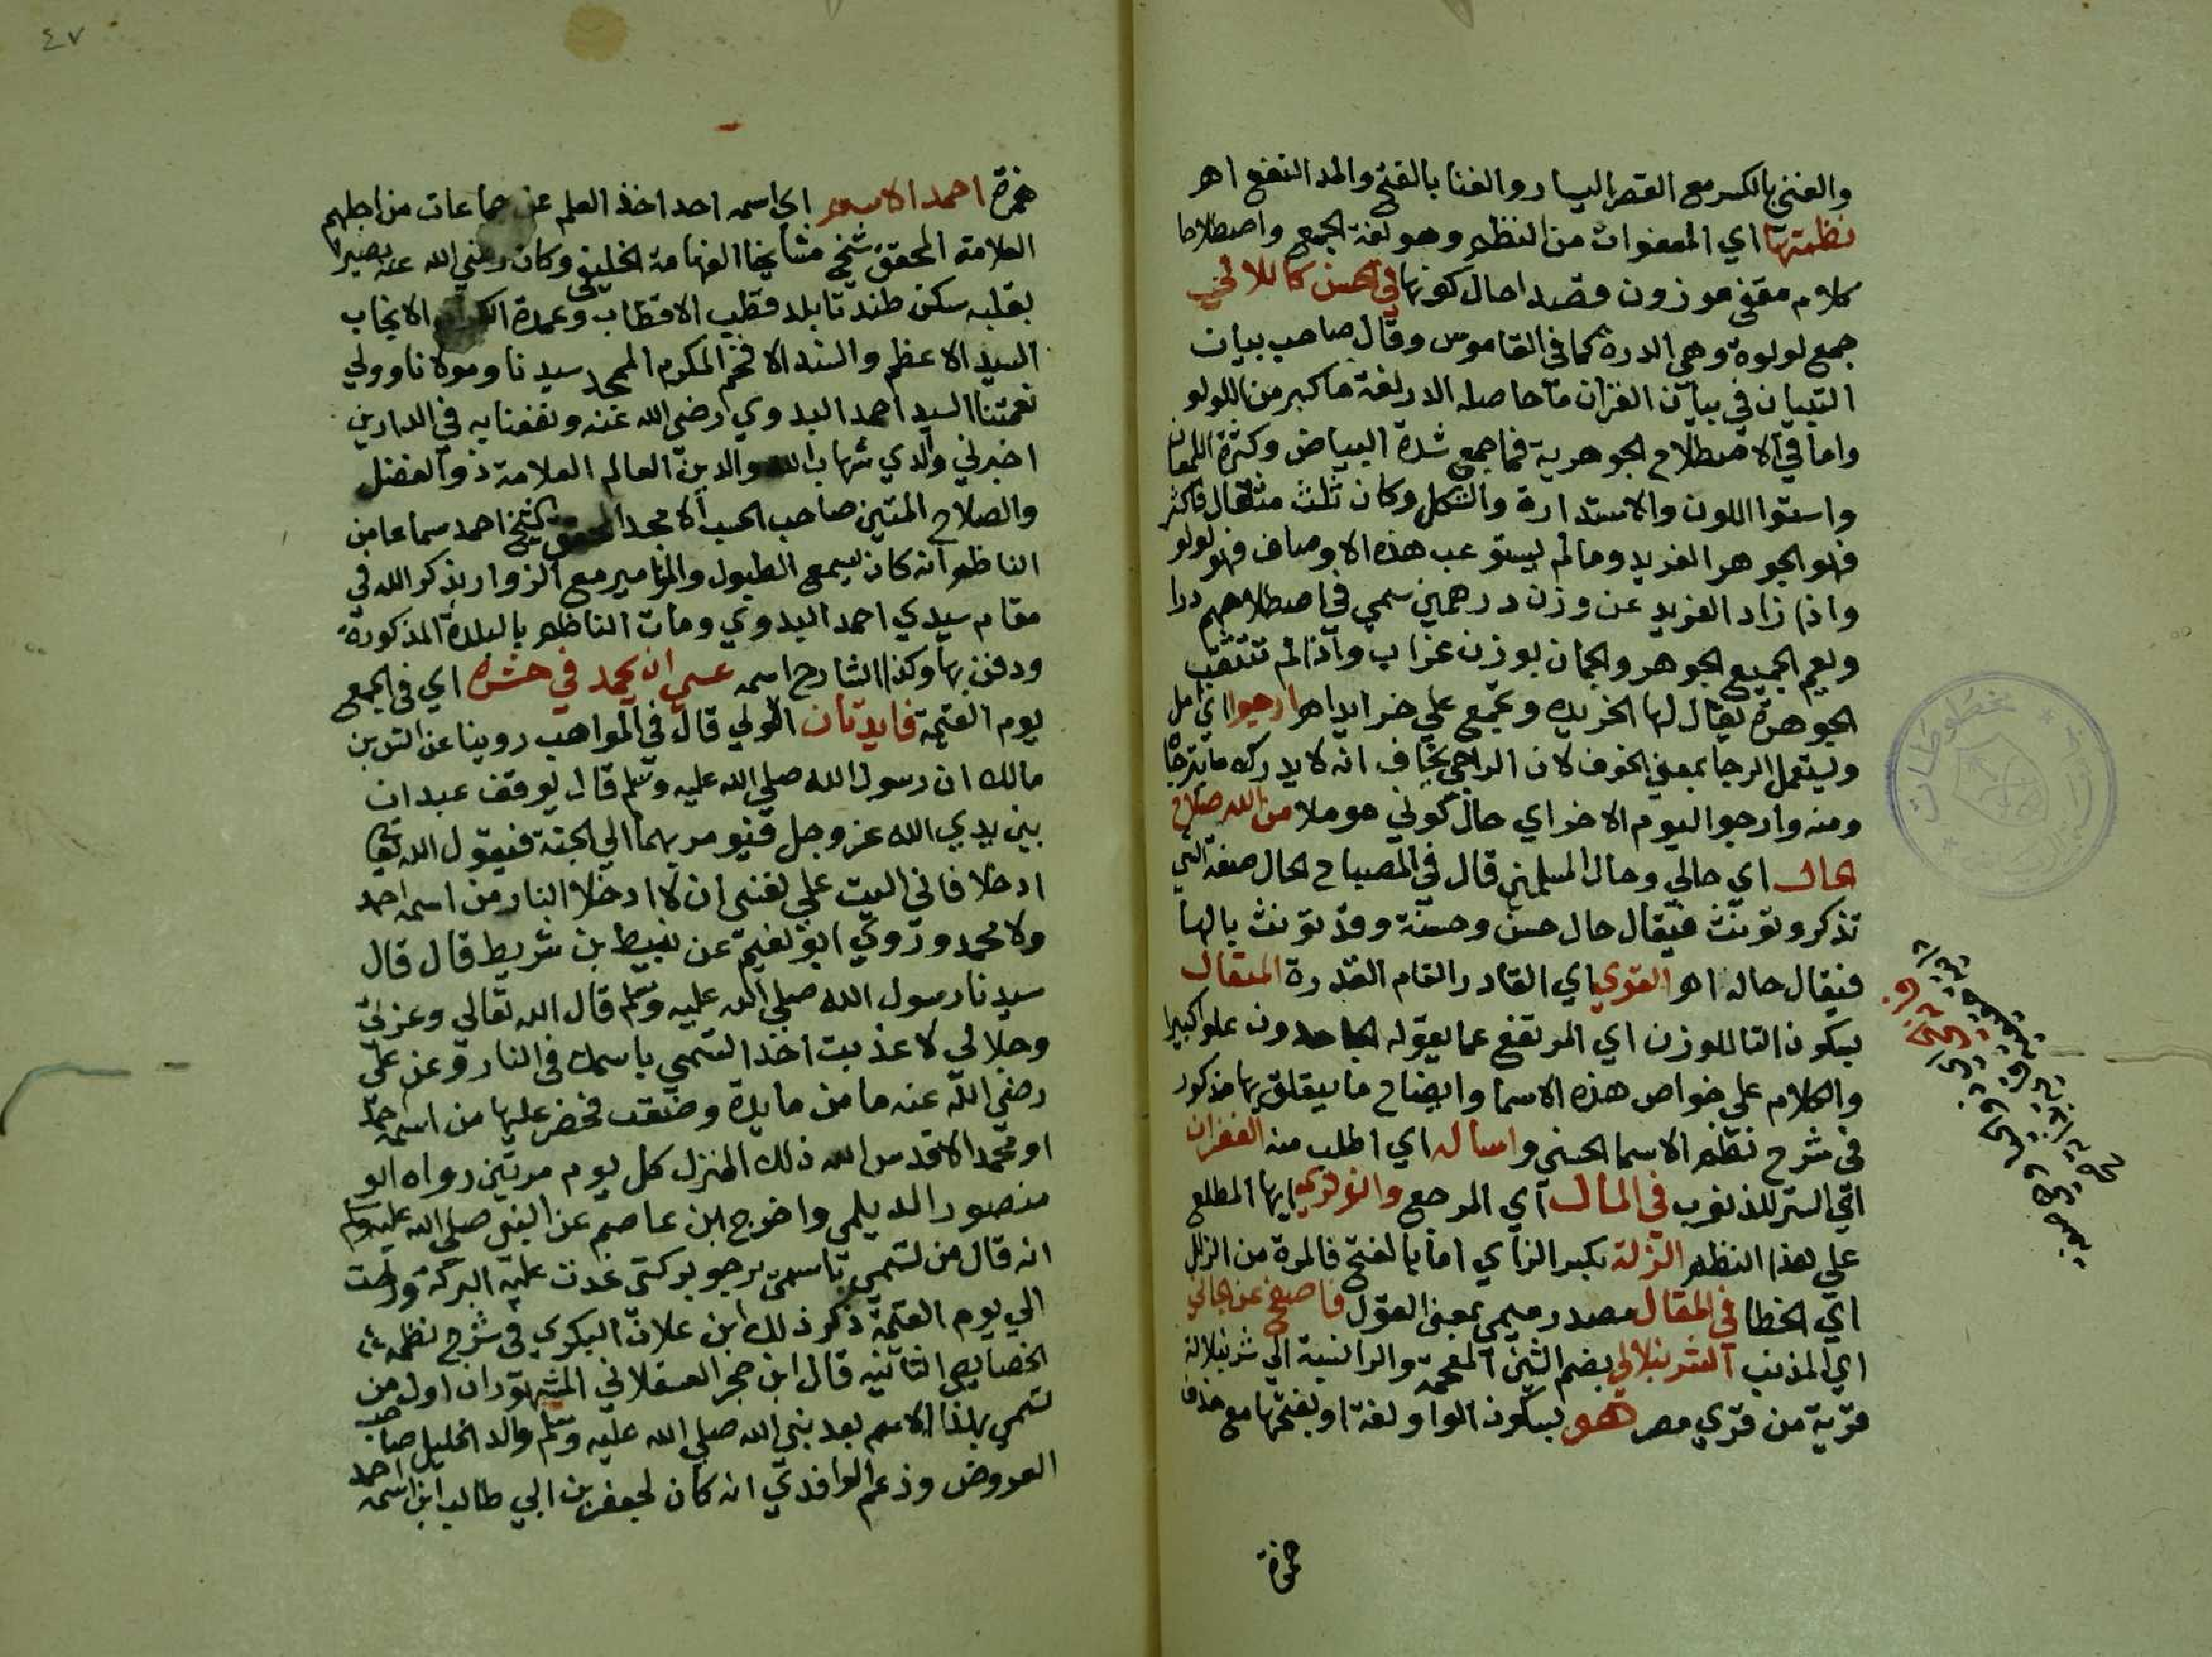 والغنى بالكسر مع القصر اليسار والغنا بالفتح والمد النفع اهـ
نظمتها اي المعفوات من النظم وهو لغة الجمع واصطلاحا
كلام مقفى موزون قصدا حال كونها في الحسن كاللالئ
جمع لولوة وهي الدرة كما في القاموس وقال صاحب بيان
التبيان في بيان القران ما حاصله الدر لغة ما كبر من اللولو
واما في الاصطلاح الجوهرية فما جمع شدة البياض وكثرة اللمعان
واستوا اللون والاستدارة والشكل وكان ثلث مثقال فاكثر
فهو الجوهر الفريد وما لم يستوعب هذه الاوصاف فهو لولو
واذا زاد الفريد عن وزن درهمين سمي في اصطلاحهم درا
ويعم الجميع الجوهر والجمان بوزن غراب واذا لم تتثقب
الجوهرة يقال لها الخريده وتجمع علي خرايد اهـ ارجوا اي امل
ويستعمل الرجا بمعنى الخوف لان الراجي يخاف انه لا يدرك ما يترجاه
ومنه وارجوا اليوم الاخر اي حال كوني موملا من الله صلاح
الحال اي حالي وحال المسلمين قال في المصباح الحال صفة الشي
تذكر وتونث فيقال حال حسن وحسنة وقد تونث بالها
فيقال حاله اهـ القوي اي القادر التام القدرة المتعال
بسكون التا للوزن اي المرتفع عما يقوله الجاحدون علوا كبيرا
والكلام علي خواص هذه الاسما وايضاح ما يتعلق بها مذكور
في شرح نظم الاسما الحسني واساله اي اطلب منه الغفران
اي الستر للذنوب في المال اي المرجع والناظر ايها المطلع
علي هذا النظم الزلة بكسر الزاي اما بالفتح فالمرة من الزلل
اي الخطا في المقال مصدر ميمي بمعنى القول فاصفح عن الجاني
اي المذنب الشرنبلالي بضم الشين المعجمة والرا نسبة الي شرنبلالة
قرية من قري مصر هو بسكون الواو لغة او بفتحها مع حذف
همزة
٤٧
همزة احمد الاسم اي اسمه احمد اخذ العلم عن جماعات من اجلهم
العلامة المحقق شيخ مشايخنا الفهامة الخليفي وكان رضي الله عنه بصيرا
بقلبه سكن طندتا بلد قطب الاقطاب وعمدة الانجاب
السيد الاعظم والسند الافخم المكرم الممجد سيدنا ومولانا وولي
نعمتنا السيد احمد البدوي رضي الله عنه ونفعنا به في الدارين
اخبرني والدي شهاب الله والدين العالم العلامة ذو الفضل
والصلاح المتين صاحب الحسب الامجد المحقق الشيخ احمد سماعا من
الناظم انه كان يسمع الطبول والمزامير مع الزوار بذكر الله في
مقام سيدي احمد البدوي ومات الناظم بالبلدة المذكورة
ودفن بها وكذا الشارح اسمه عسي ان يحمد في حشره اي في الجمع
يوم القيمة فايدتان الاولي قال في المواهب روينا عن انس بن
مالك ان رسول الله صلي الله عليه وسلم قال يوقف عبدان
بين يدي الله عز وجل فيومر بهما الي الجنة فيقول الله تعالي
ادخلا فاني اليت علي نفسي ان لا ادخل النار من اسمه احمد
ولا محمد وروي ابو نعيم عن نبيط بن شريط قال قال
سيدنا رسول الله صلي الله عليه وسلم قال الله تعالي وعزتي
وجلالي لا عذبت احدا تسمى باسمك في النار وعن علي
رضي الله عنه ما من مايدة وضعت فحضر عليها من اسمه احمد
او محمد الا قدس الله ذلك المنزل كل يوم مرتين رواه ابو
منصور الديلمي واخرج ابن عاصم عن النبي صلي الله عليه وسلم
انه قال من تسمى باسمي يرجو بركتي غدت عليه البركة وراحت
الي يوم القيمة ذكر ذلك ابن علان البكري في شرح نظمه
الخصايص الثانيه قال ابن حجر العسقلاني المشهور ان اول من
تسمى بهذا الاسم بعد نبي الله صلي الله عليه وسلم والد الخليل صاحب
العروض وزعم الواقدي انه كان لجعفر بن ابي طالب ابن اسمه احمد